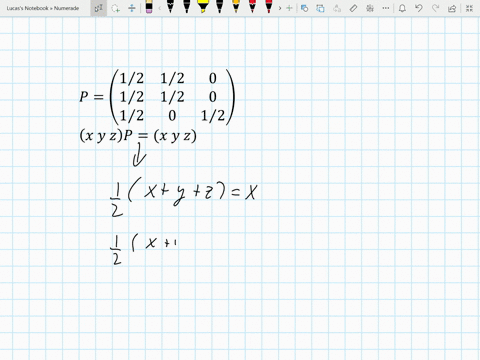 Lucas's Notebook » Numerade
P = (1/2 1/2 0
1/2 1/2 0
1/2 0 1/2)
(x y z)P = (x y z)
1/2 ( x + y + z ) = x
1/2 ( x +